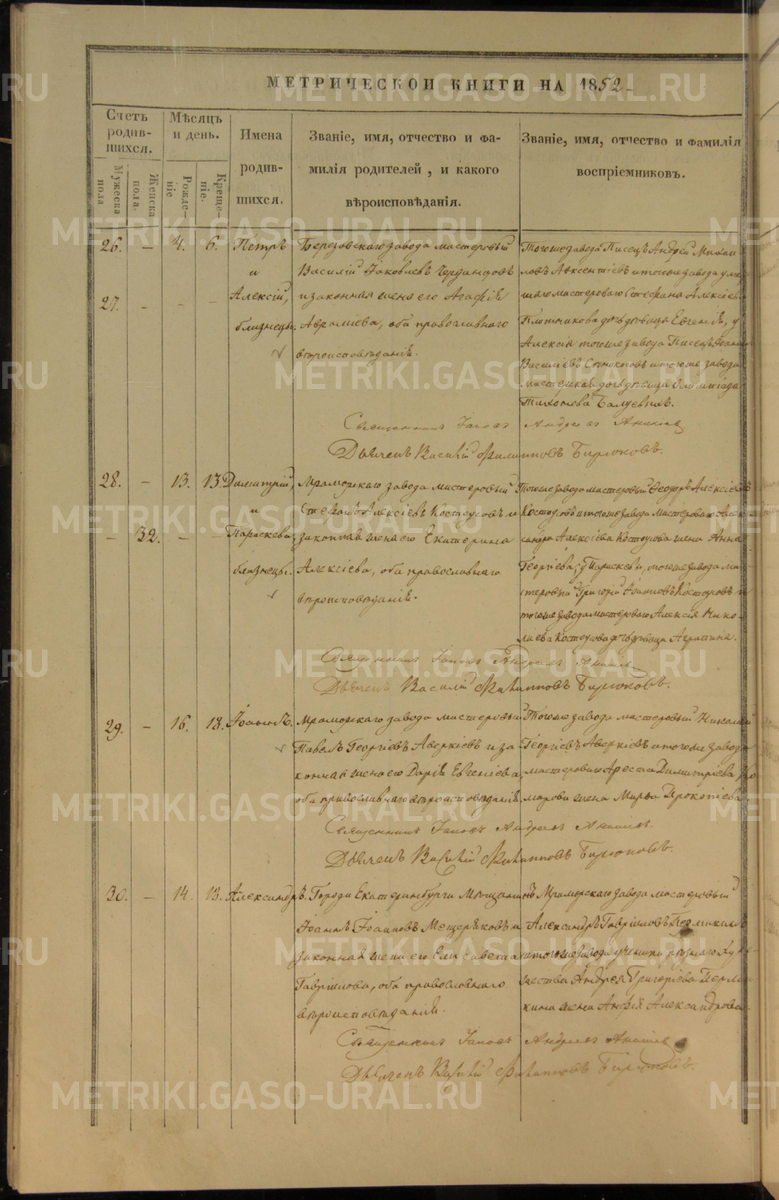 МЕТРИЧЕСКОЙ КНИГИ НА 1852
Счетъ родив-шихся.
Мужеска пола
Женска пола.
Мѣсяцъ и день.
Рожде-ніе
Креще-ніе.
Имена родив-шихся.
Званіе, имя, отчество и фа-
милія родителей, и какого
вѣроисповѣданія.
Званіе, имя, отчество и фамилія
воспріемниковъ.
26. – 4. 6. Петръ
и
27. Алексій,
близнецы.
Березовскаго завода мастеровый
Василій Іаковлевъ
и законная жена его Агафія
Авраміева, оба православнаго
вѣроисповѣданія.
Тогоже завода Писецъ Андрей Михаи
ловъ Авксентіевъ и тогоже завода
мастероваго Стефана Алексіева
дочь дѣвица Евгенія, у
Алексія тогоже завода Писецъ Іоаннъ
Василіевъ и тогоже завода
дочь дѣвица
Священникъ Іаковъ Андреевъ
Дьячекъ Василій Филипповъ Бирюковъ.
28. – 13. 13. Димитрій,
и
– 32. – – Параскева,
близнецы.
Мраморскаго завода мастеровый
Стефанъ Алексіевъ Костоусовъ и
законная жена его Екатерина
Алексіева, оба православнаго
вѣроисповѣданія.
Тогоже завода мастеровый Ѳеодоръ Алексіевъ
Костоусовъ и тогоже завода мастероваго
Алексіева Костоусова жена Анна
Георгіева; у Параскевы, тогоже завода ма
стеровый Григорій Іоанновъ Костоусовъ и
тогоже завода мастероваго Алексія Нико
лаева Костоусова дочь дѣвица
Священникъ Іаковъ Андреевъ
Дьячекъ Василій Филипповъ Бирюковъ.
29. – 16. 18. Іоаннъ.
Мраморскаго завода мастеровый
Павелъ Георгіевъ Аверкіевъ и за
конная жена его Дарія Евгеніева,
оба православнаго вѣроисповѣданія.
Тогоже завода мастеровый Николай
Георгіевъ Аверкіевъ и тогоже завода
мастероваго Димитріева
жена Марѳа Прокопіева.
Священникъ Іаковъ Андреевъ
Дьячекъ Василій Филипповъ Бирюковъ.
30. – 14. 18. Александръ.
Города Екатеринбурга Мѣщанинъ
Іоаннъ Іоанновъ Мещеряковъ и
законная жена его Елисавета
Гавриилова, оба православнаго
вѣроисповѣданія.
Мраморскаго завода мастеровый
Александръ Гаврииловъ Пермикинъ
и тогоже завода
Андрея Григоріева Перми
кина жена Александрова.
Священникъ Іаковъ Андреевъ
Дьячекъ Василій Филипповъ Бирюковъ.
METRIKI.GASO-URAL.RU